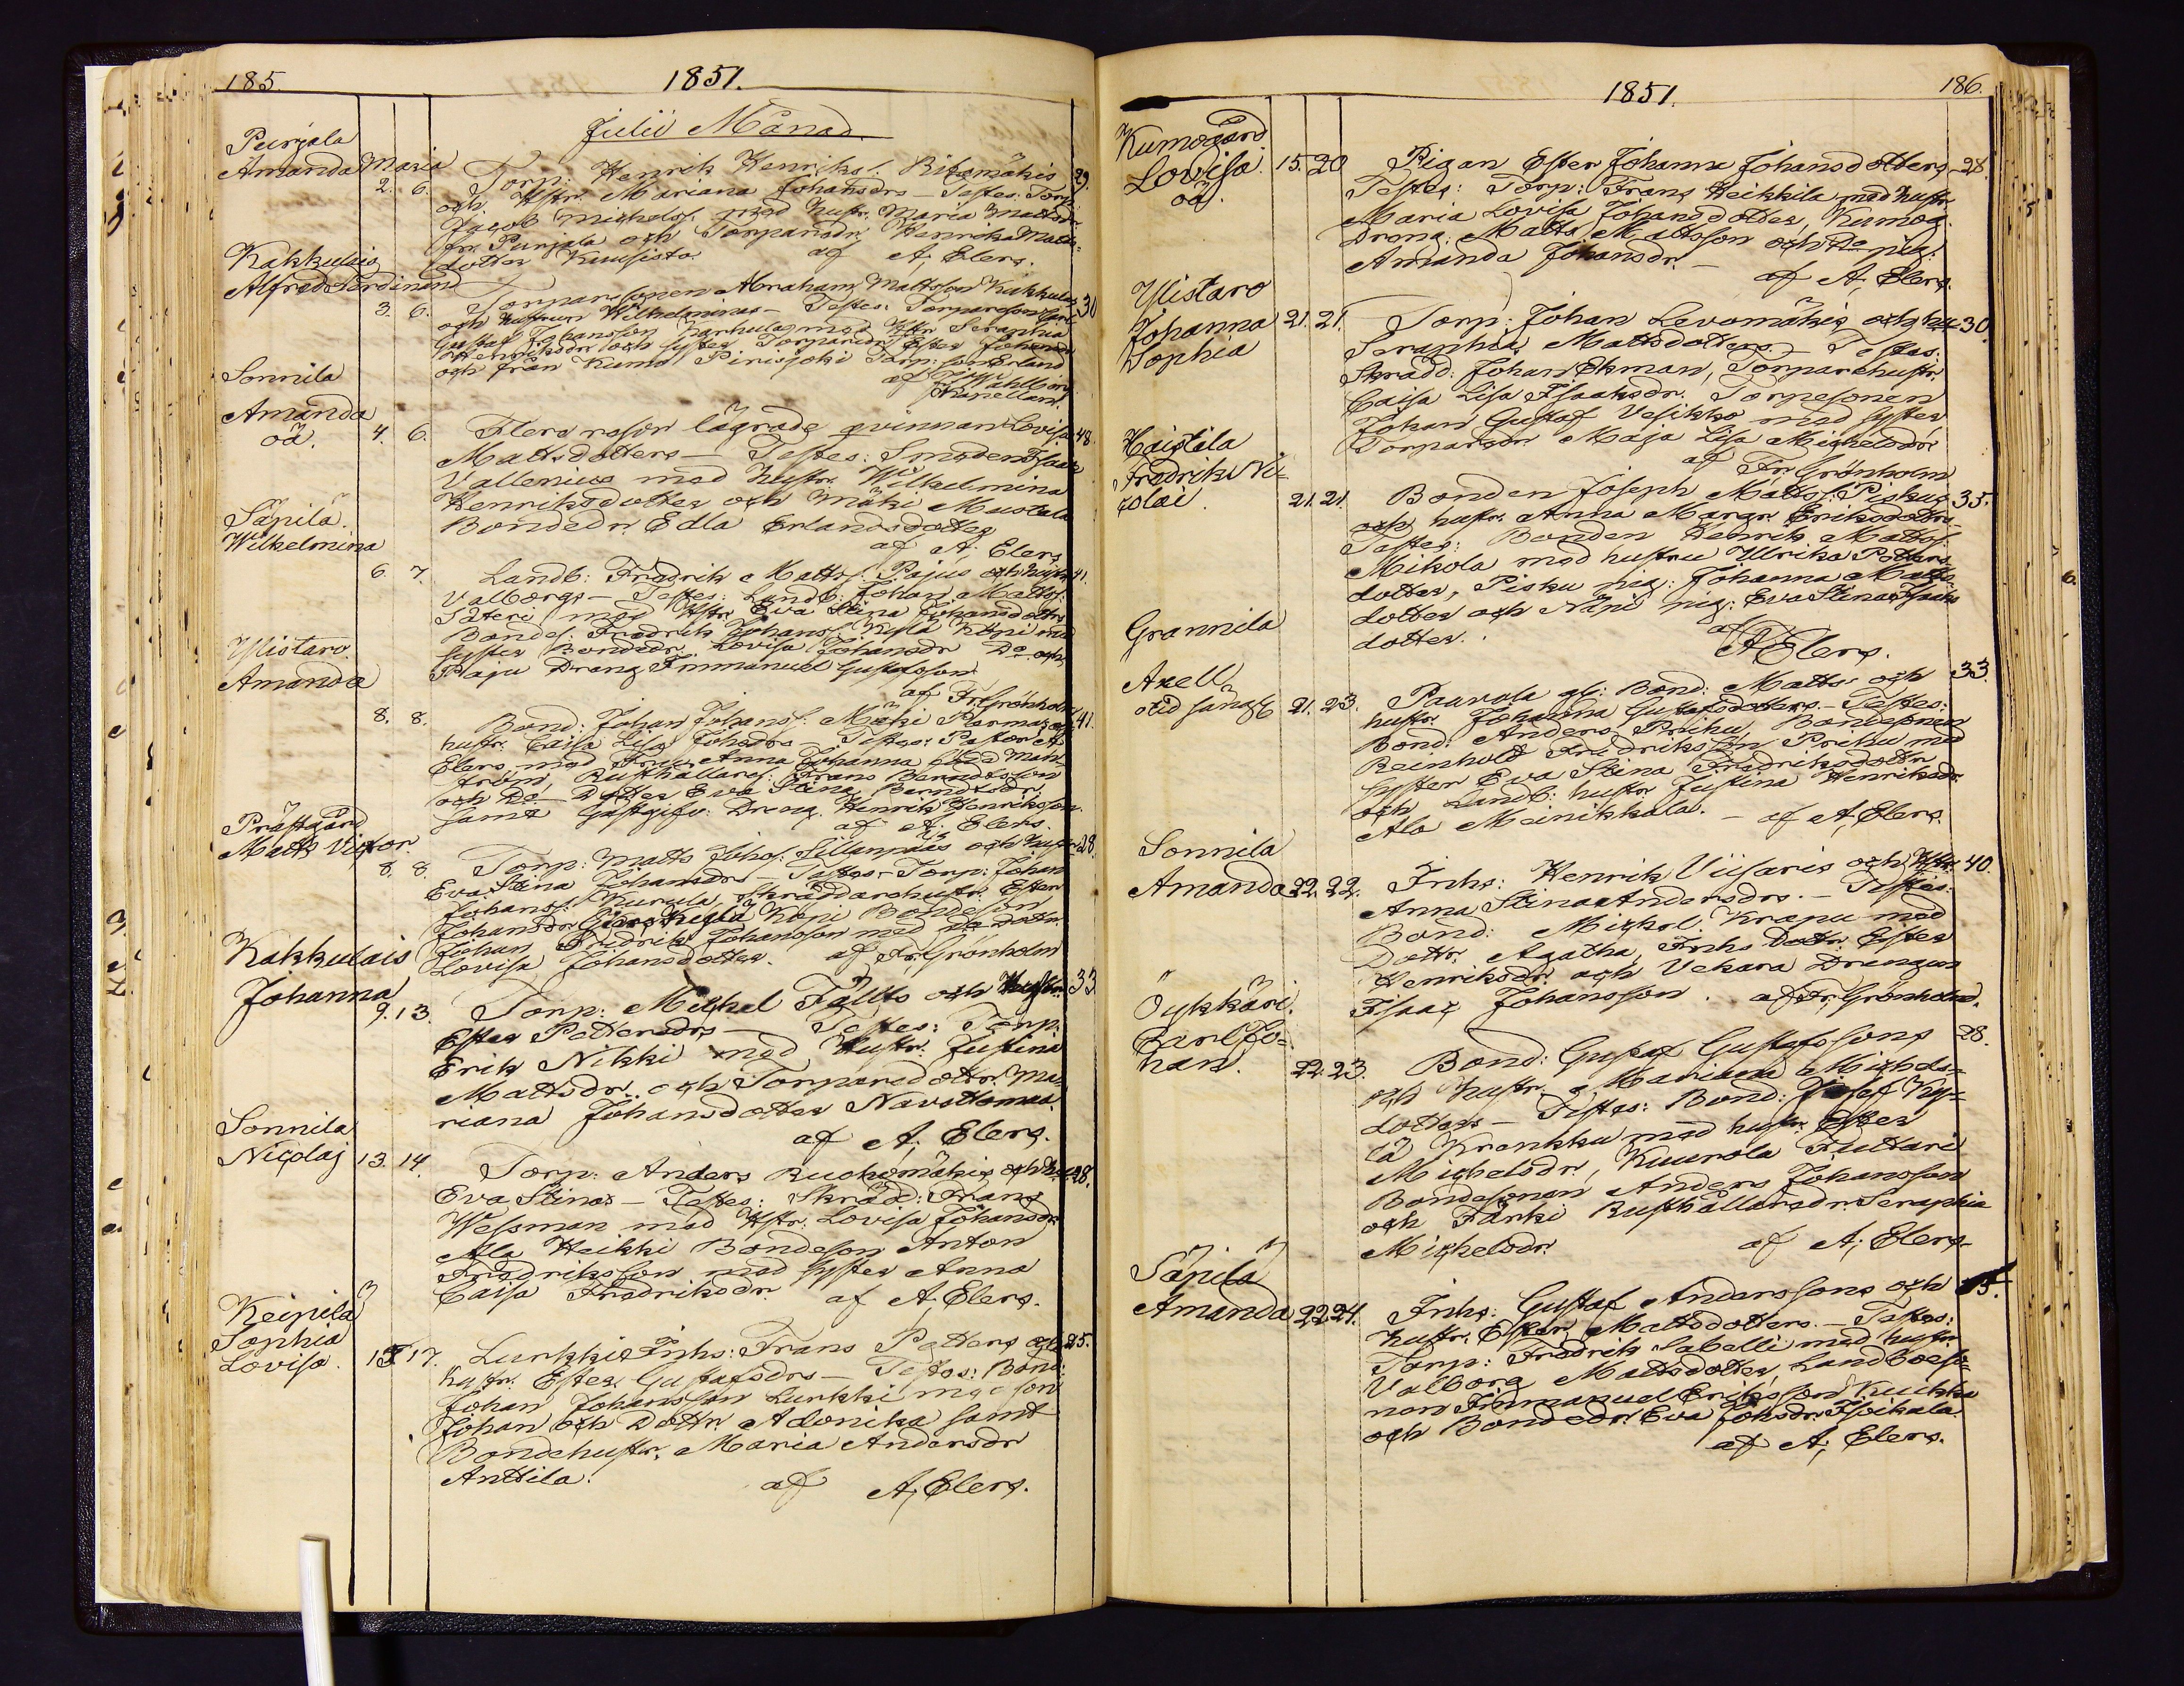 185.
1851.
Julii Månad.
Purjala
Amanda Maria
2. 6. Torp: Henrik Henriks. Ritamäkis 29.
och Hstr. Mariana Johansdrs — Testes: Torp:
Jacob Michelss. med hustr. Maria Mattsdr
fr. Purjala och Torparedr. Henrika Matts=
dotter Kuusisto. af A. Elers.
Kakkulais
Alfred Ferdinand
3. 6. Torparesonen Abraham Mattsson Kakkulais 30
och hustrun Wilhelminas — Testes: Torpareson
Gustaf Johansson med Hstr Seraphia
Henriksdr och syster Torparedr Ester Johansdr
och från Kumo Pirisjoki Torp: son Erland
af
Kapellan.
Sonnila
Amanda
oä. 4. 6. Flere resor lägrade qvinnan Lovisa 48.
Mattsdotters — Testes: Smeden Isaac
Vallenius med hustr. Wilhelmina
Henriksdotter och Mäki Mustala
Bondedr. Edla Erlandsdotter
af A. Elers
Säpilä.
Wilhelmina
6. 7. Landb: Fredrik Mattss. Pajus och hustr 41.
Valborgs — Testes: Landb: Johan Mattss.
Säteri med Hstr Eva Stina Johansdotter
Bondes. Fredrik Johanss. Kylä Köni med
syster Bondedr. Lovisa Johansdr Do. och
Paju Dreng Immanuel Gustafsson
af Fr. Grönholm
Ylistaro
Amanda
8. 8. Bond: Johan Johanss: Mäki Parmas och 41.
hustr. Caisa Lisa Johsdrs — Testes: Pastor A.
Elers med Fru Anna Johanna född Man=
ström, Rusthållares. Frans Berndtsson
och Do — Dotter Eva Stina Berndtsdr.
samt Gästgifv. Dreng. Henrik Henriksson.
af A. Elers.
Prästgård
Matts Victor.
8. 8. Torp: Matts Johss: Sillanpääs och hustr. 28.
Eva Stina Johansdrs — Testes: Torp: Johan
Johanss. Kurula, Skräddarehustr. Ester
Johansdr Kylä Köni Bondeson
Johan Fredrik Johansson med Do Dottr.
Lovisa Johansdotter. af Fr. Grönholm
Kakkulais
Johanna
9. 13. Torp: Michel Fällts och Hustr. 33
Ester Pettersdrs — Testes: Torp:
Erik Nikki med Hustr. Justina
Mattsdr. och Torparedottr. Ma=
riana Johansdotter Navettamaa.
af A. Elers.
Sonnila
Nicolaj 13. 14. Torp: Anders Ruohomäkis och hu. 28.
Eva Stinas — Testes: Skrädd: Frans
Wessman med Hstr. Lovisa Johansdr
Ala Heikki Bondeson Anton
Fredriksson med syster Anna
Caisa Fredriksdr. af A. Elers.
Keipilä
Sophia
Lovisa. 15 17. Lurkkis Inhs: Frans Petters och 25.
hustr. Ester Gustafsdrs — Testes: Bond:
Johan Johansson Lurkki med son
Johan och Dottr. Adonika samt
Bondehustr. Maria Andersdr
Anttila. af A. Elers.
1851.
186.
Kumogård
Lovisa. 15. 20 Pigan Ester Johanna Johansdotters 28.
oä. Testes: Torp: Frans Heikkilä med hustr.
Maria Lovisa Johansdotter, Kumog.
Dreng. Matts Mattsson och Do pig:
Amanda Johansdr. — af A. Elers.
Ylistaro
Johanna 21. 21. Torp: Johan Levomäkis och hu 30.
Sophia Seraphia Mattsdotters — Testes:
Skrädd: Johan Ekman, Torparehustr.
Caisa Lisa Isaaksdr. Torpesonen
Johan Gustaf Vesikko med syster
Torparedr Maja Lisa Michelsdr
af Fr. Grönholm
Haistila
Fredrik Ni=
colai. 21. 21. Bonden Joseph Mattss: Piskus 35.
och hustr. Anna Margr. Eriksdottrs
Testes: Bonden Henrik Mattss.
Mikola med hustru Ulrika Petters=
dotter, Pisku pig: Johanna Matts=
dotter och Näni pig: Eva Stina Isaks
dotter. af
A Elers.
Grannila
Axell
21. 23. Paavola gl: Bond: Matts och 33.
hustr. Johanna Gustafsdotters. — Testes:
Bond: Anders Prihu, Bondesonen
Reinhold Fredriksson Prihu med
syster Eva Stina Fredriksdottr
och Landb: hustr Justina Henriksdr.
Ala Meinikkala. — af A. Elers.
Sonnila
Amanda 22. 22. Inhs: Henrik Viisaris och Hstr. 40.
Anna Stina Andersdrs. — Testes:
Bond: Michel. Krapu med
Dottr. Agatha, Inhs Dottr. Ester
Henriksdr. och Vekara Drengen
Isaac Johansson. af Fr. Grönholm.
Öykkäri.
Carl Jo=
han. 22. 23. Bond: Gustaf Gustafssons 28.
och hustr. Mariana Michels=
dotters — Testes: Bond: Josef Ky=
lä Krankku med hustr. Ester
Michelsdr., Kuurola Juttari
Bondesonen Anders Johansson
och Färki Rusthållaredr. Seraphia
Michelsdr. af A. Elers.
Säpilä
Amanda 22. 24. Inhs: Gustaf Anderssons och 25.
hustr. Ester Mattsdotters. — Testes:
Torp: Fredrik Sabelli med hustr.
Valborg Mattsdotter, Landboeso=
nen Immanuel Eriksson Kukka
och Bondedr. Eva Johsdr. Isoikala.
af A. Elers.